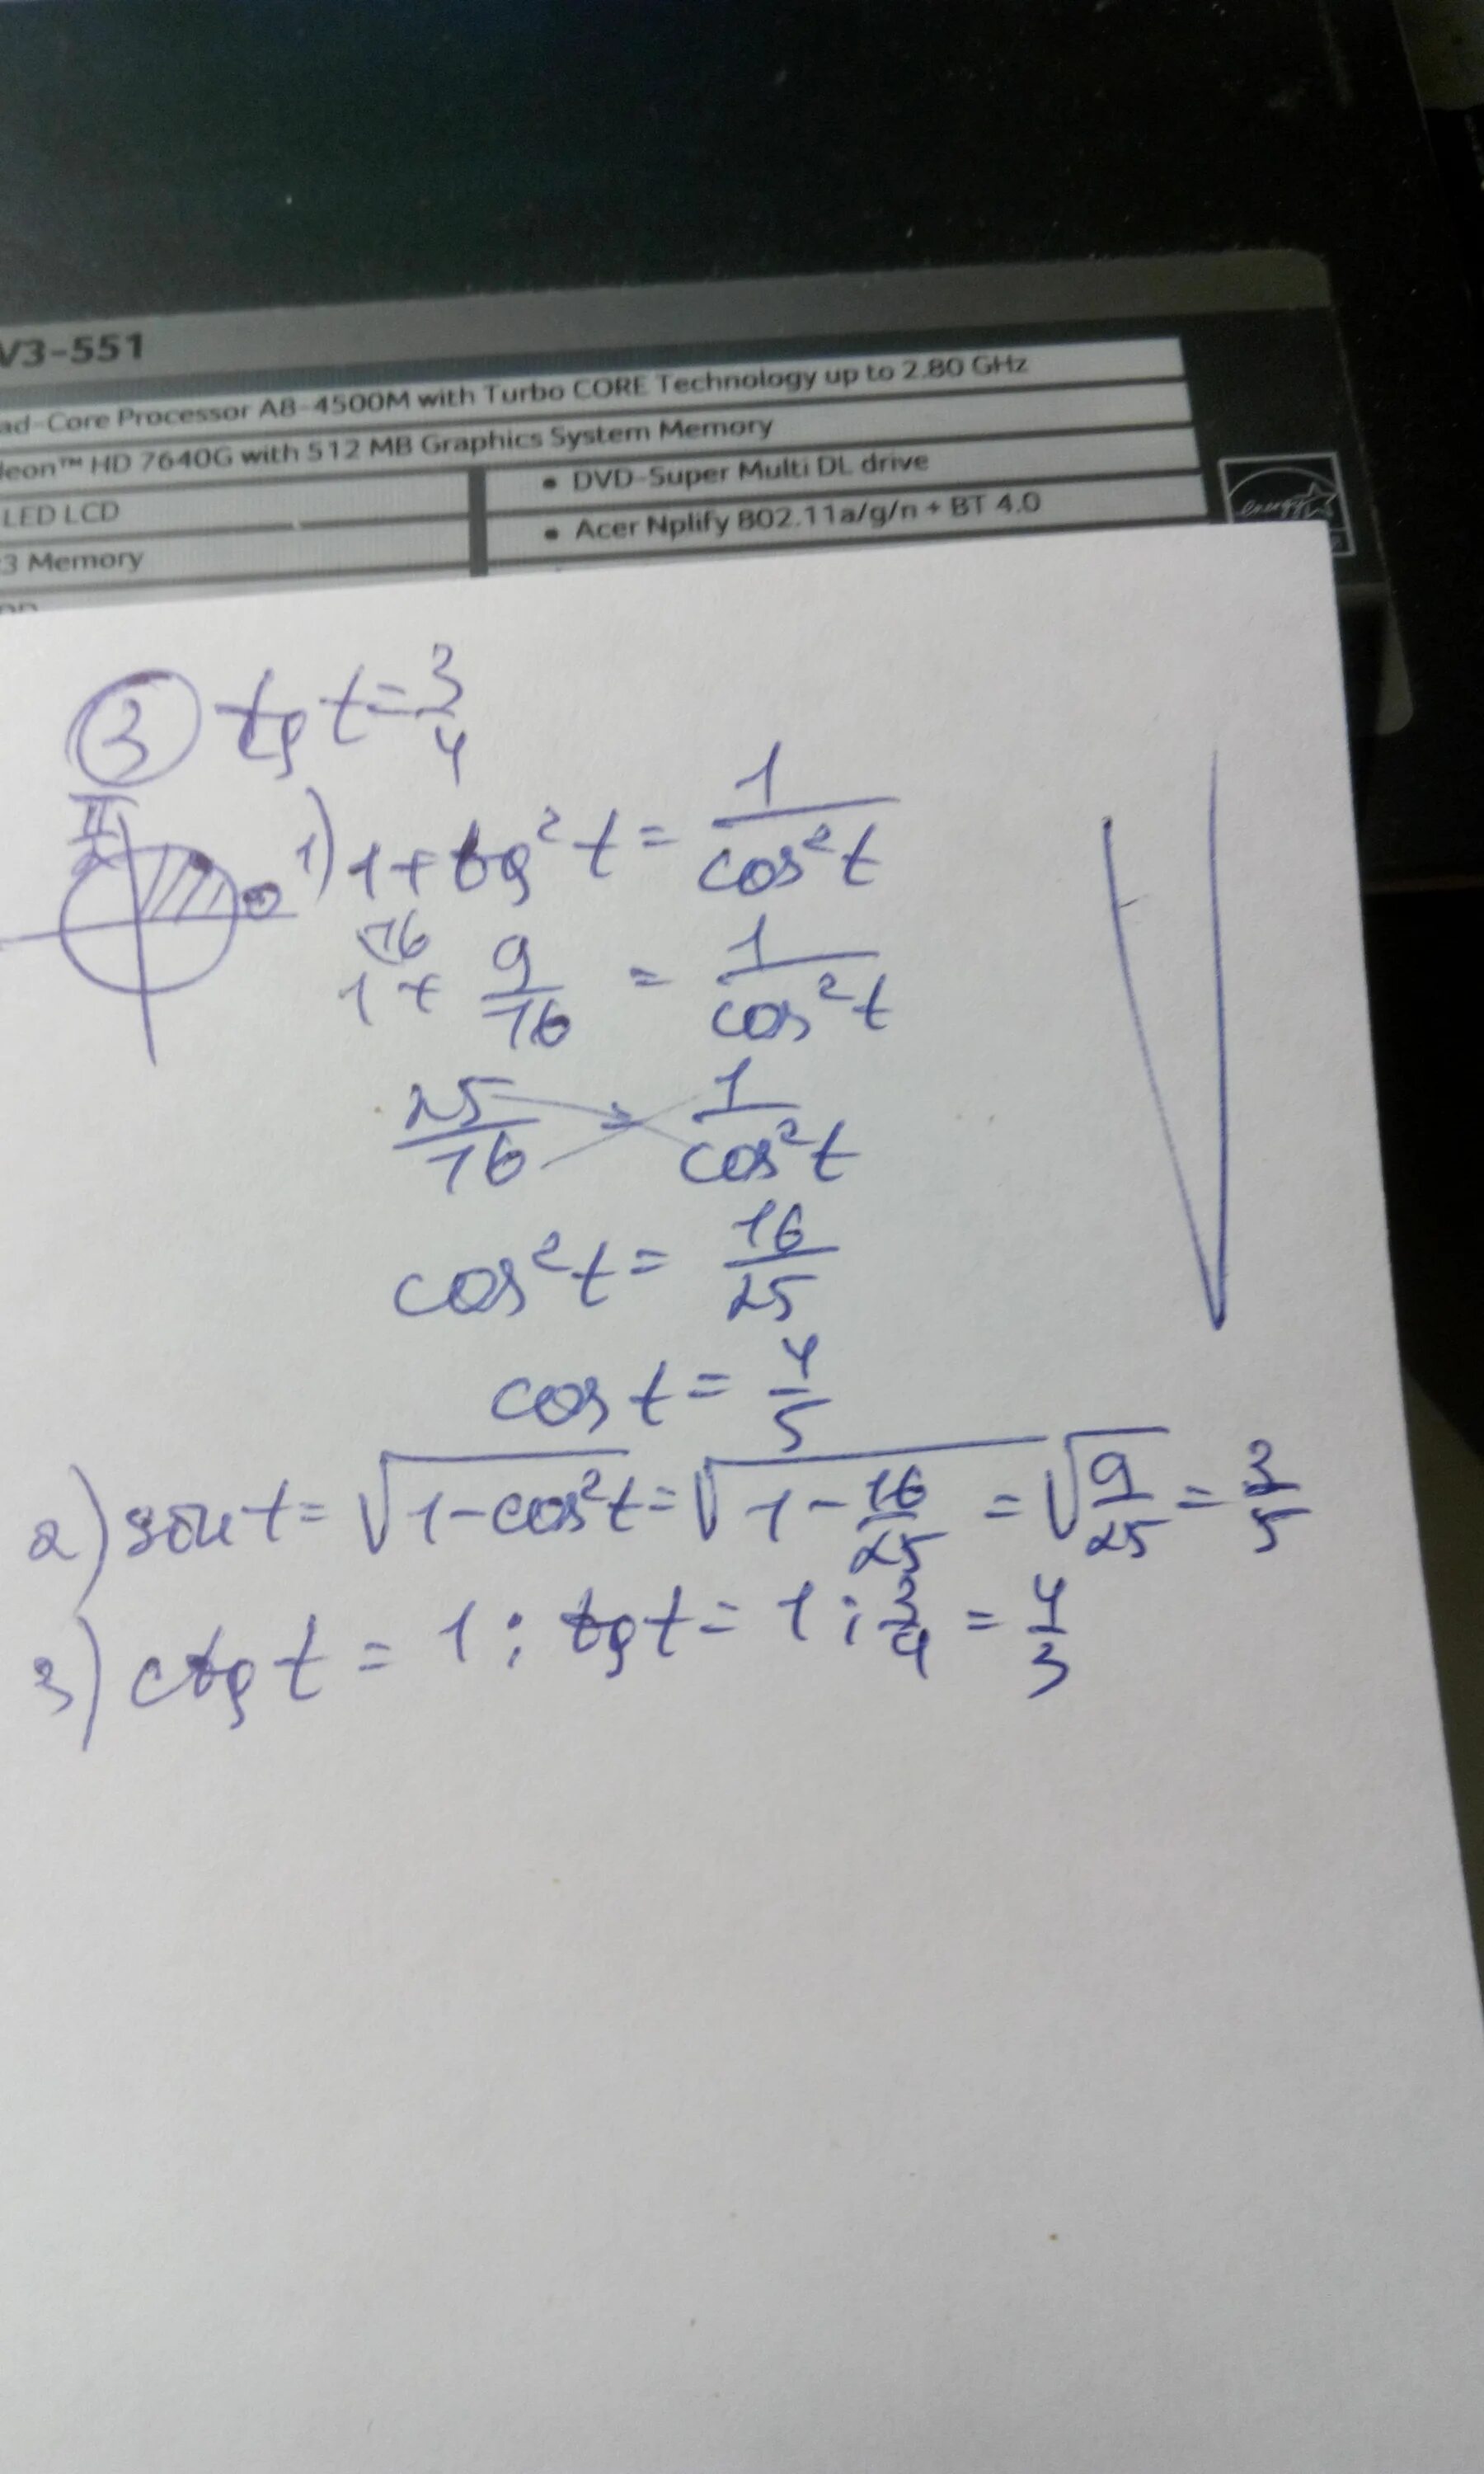 V3-551
ad-Core Processor A8-4500M with Turbo CORE Technology up to 2.80 GHz
deon™ HD 7640G with 512 MB Graphics System Memory
LED LCD
• DVD-Super Multi DL drive
3 Memory
• Acer Nplify 802.11a/g/n + BT 4.0
energy
③ tg t = 3/4
π/2
0
1) 1 + tg² t = 1/cos² t
16
1 + 9/16 = 1/cos² t
25/16 = 1/cos² t
cos² t = 16/25
cos t = 4/5
2) sin t = √(1 - cos² t) = √(1 - 16/25) = √(9/25) = 3/5
3) ctg t = 1 : tg t = 1 : 3/4 = 4/3